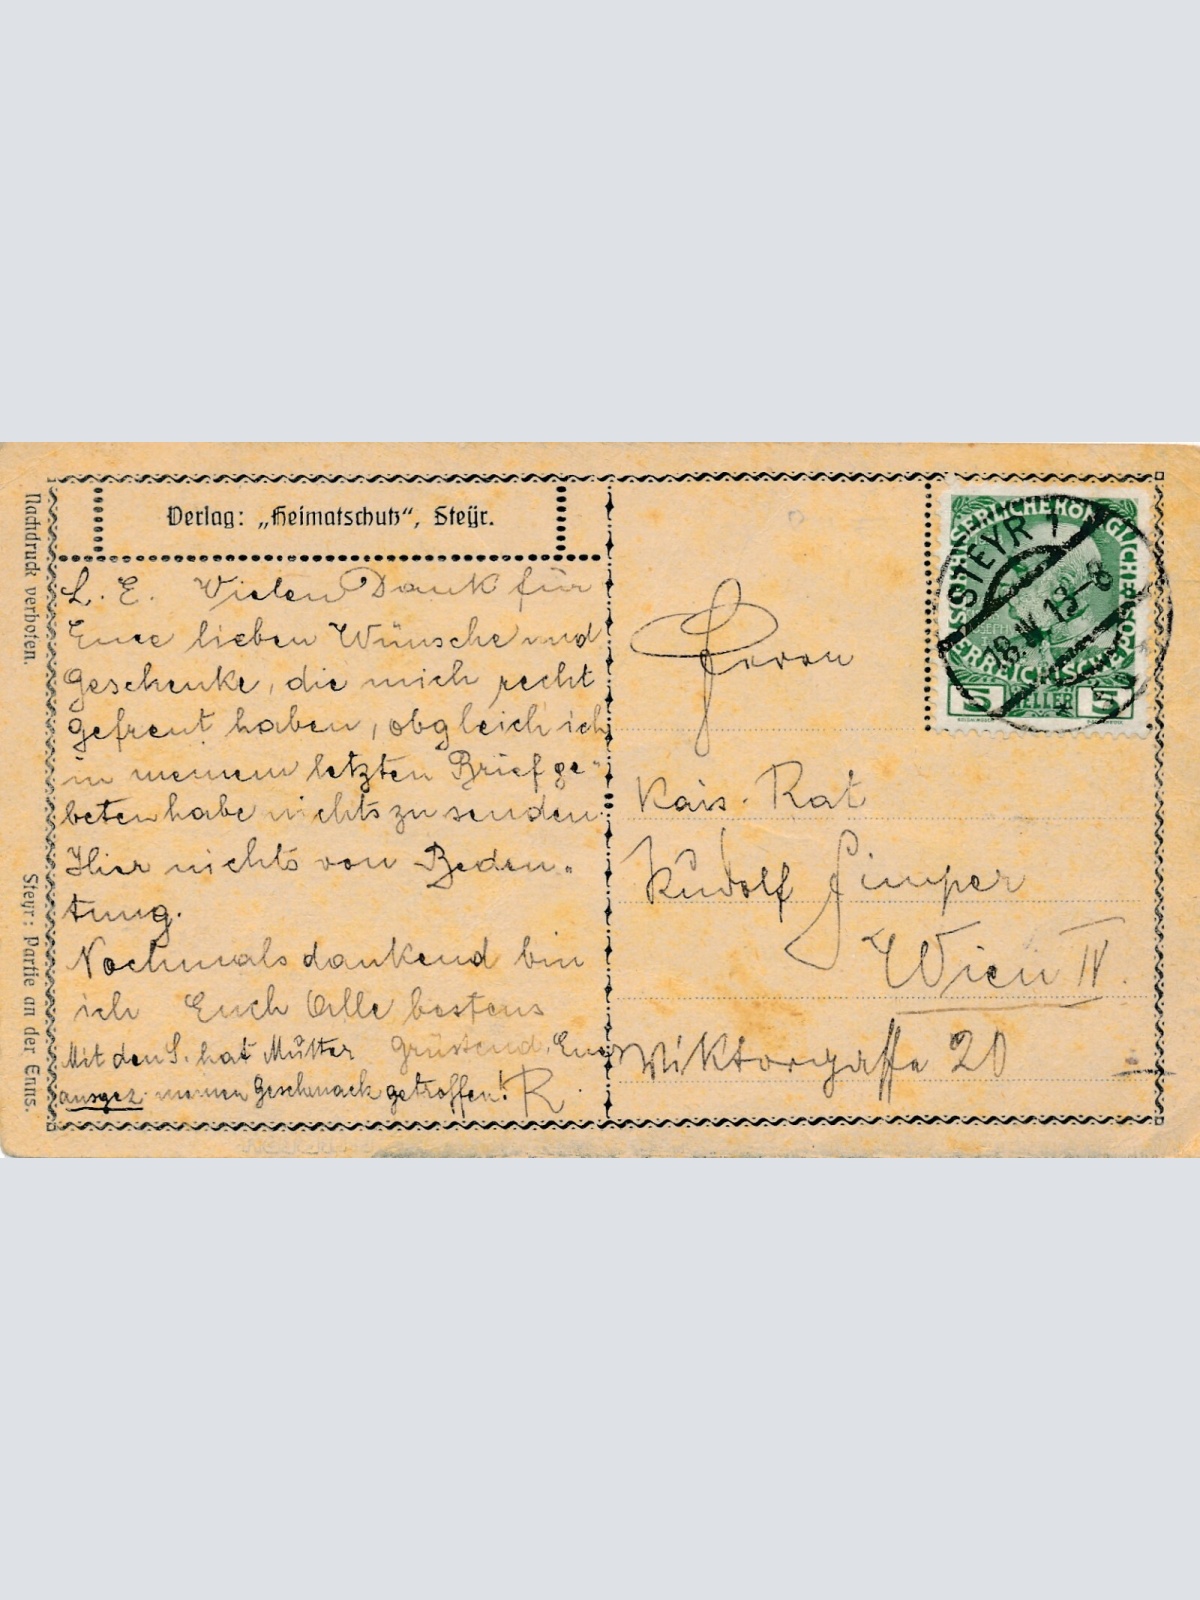 Verlag: „Heimatschutz“, Steyr.
Nachdruck verboten.
Steyr: Partie an der Enns.
L. E. Vielen Dank für
Eure lieben Wünsche und
Geschenke, die mich recht
gefreut haben, obgleich ich
in meinem letzten Brief ge-
beten habe nichts zu senden.
Hier nichts von Bedeu-
tung.
Nochmals dankend bin
ich Euch Alle bestens
grüssend, Euer
R
Mit den S. hat Mutter
ausgez. meinen Geschmack getroffen!
KAISERLICHE KÖNIGLICHE
ÖSTERREICHISCHE POST
5 HELLER 5
STEYR 1
Herrn
Kais. Rat
Rudolf
Wien IV.
Wiktorgasse 20